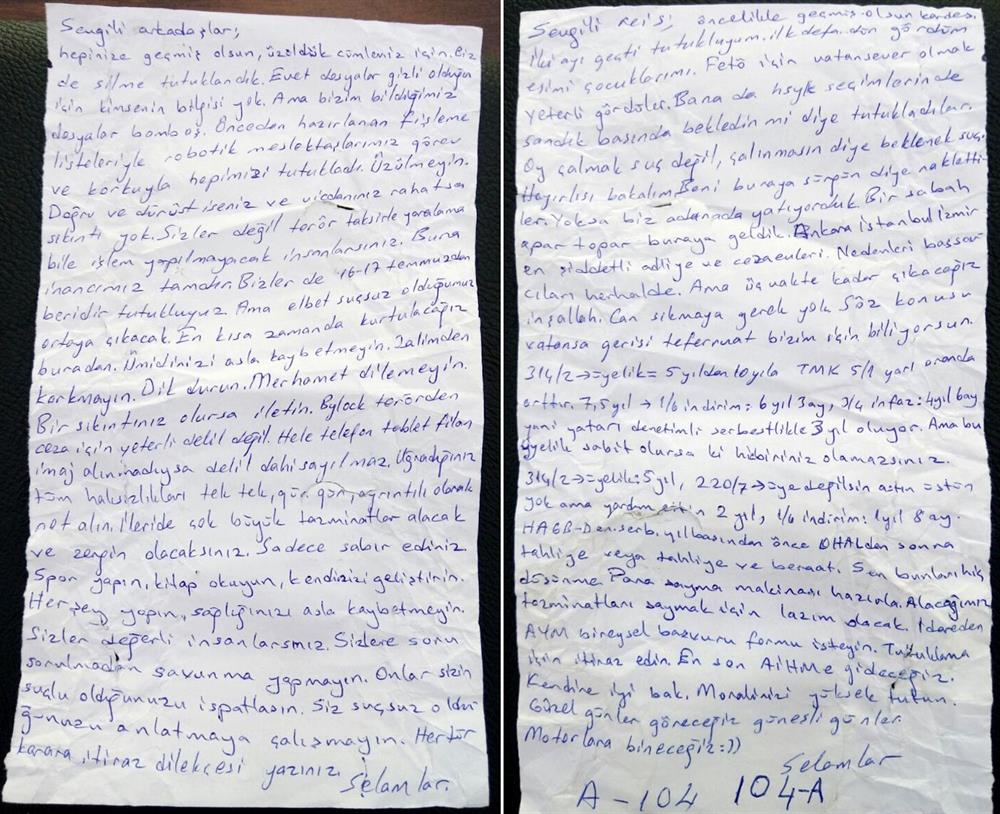 Sevgili arkadaşlar;
hepinize geçmiş olsun, üzüldük cümleniz için. Biz
de silme tutuklandık. Evet dosyalar gizli olduğu
için kimsenin bilgisi yok. Ama bizim bildiğimiz
dosyalar bomboş. Önceden hazırlanan fişleme
listeleriyle robotik meslektaşlarımız görev
ve korkuyla hepimizi tutukladı. Üzülmeyin.
Doğru ve dürüst iseniz ve vicdanınız rahatsa
sıkıntı yok. Sizler değil terör taksirle yaralama
bile işlem yapılmayacak insanlarsınız. Buna
inancımız tamdır. Bizler de 16-17 temmuzdan
beridir tutukluyuz. Ama elbet suçsuz olduğumuz
ortaya çıkacak. En kısa zamanda kurtulacağız
buradan. Ümidinizi asla kaybetmeyin. Zalimden
korkmayın. Dik durun. Merhamet dilemeyin.
Bir sıkıntınız olursa iletin. Bylock terörden
ceza için yeterli delil değil. Hele telefon tablet filan
imaj alınmadıysa delil dahi sayılmaz. Uğradığınız
tüm haksızlıkları tek tek, gün gün, ayrıntılı olarak
not alın. İleride çok büyük tazminatlar alacak
ve zengin olacaksınız. Sadece sabır ediniz.
Spor yapın, kitap okuyun, kendinizi geliştirin.
Her şey yapın, sağlığınızı asla kaybetmeyin.
Sizler değerli insanlarsınız. Sizlere soru
sorulmadan savunma yapmayın. Onlar sizin
suçlu olduğunuzu ispatlasın. Siz suçsuz oldu-
ğunuzu anlatmaya çalışmayın. Her tür
karara itiraz dilekçesi yazınız
Selamlar.
Sevgili reis; öncelikle geçmiş olsun kardeş.
İki ayı geçti tutukluyum. ilk defa dün gördüm
eşimi çocuklarımı. Fetö için vatansever olmak
yeterli gördüler. Bana da hsyk seçimlerinde
sandık başında bekledin mi diye tutukladılar.
Oy çalmak suç değil, çalınmasın diye beklenek suç.
Hayırlısı bakalım. Beni buraya sürgün diye naklett-
ler. Yoksa biz adanada yatıyorduk. Bir sabah
apar topar buraya geldik. Ankara İstanbul İzmir
en şiddetli adliye ve cezaevleri. Nedenleri başsav-
cıları herhalde. Ama üç vakte kadar çıkacağız
inşallah. Can sıkmaya gerek yok. Söz konusu
vatansa gerisi teferruat bizim için biliyorsun.
314/2 → üyelik = 5 yıldan 10 yıla TMK 5/1 yarı oranda
arttır. 7,5 yıl → 1/6 indirim: 6 yıl 3 ay, 3/4 infaz: 4 yıl 8 ay
yani yatarı denetimli serbestlikle 3 yıl oluyor. Ama bu
üyelik sabit olursa ki hiçbiriniz olamazsınız.
314/2 → üyelik: 5 yıl, 220/7 → üye değilsin astın üstün
yok ama yardım ettin 2 yıl, 1/6 indirim: 1 yıl 8 ay.
HAGB-Den.serb. yılbaşından önce OHALden sonra
tahliye veya tahliye ve beraat. Sen bunları hiç
düşünme. Para sayma makinası hazırla. Alacağımız
tazminatları saymak için lazım olacak. İdareden
AYM bireysel başvuru formu isteyin. Tutuklama
için itiraz edin. En son AİHMe gideceğiz.
Kendine iyi bak. Moralinizi yüksek tutun.
Güzel günler göreceğiz güneşli günler
Motorlara bineceğiz :))
Selamlar
A-104 104-A